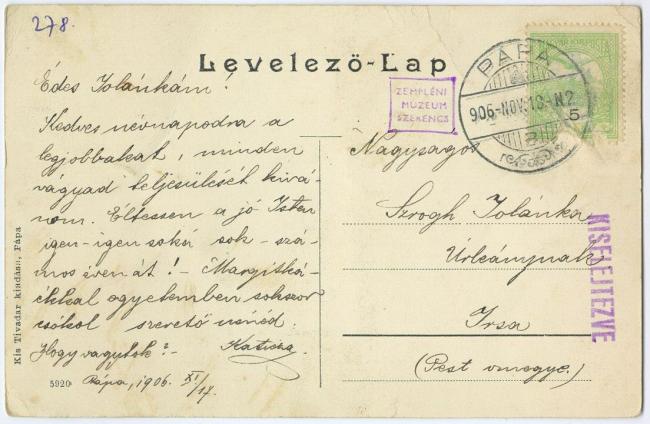 278.
Levelező-Lap
ZEMPLÉNI
MÚZEUM
SZERENCS
PÁPA
906.-NOV.18-N2
5
Édes Jolánkám!
Kedves névnapodra a
legjobbakat, minden
vágyad teljesülését kivá-
nom. Éltessen a jó Isten
igen-igen soká sok-szá-
mos éven át! – Margitká-
ékkal egyetemben sokszor
csókol szerető nénéd.
Hogy vagytok? – Katicza.
Pápa, 1906. XI/17.
Nagyságos
Szrogh Jolánka
Úrleánynak
Irsa
(Pest vmegye.)
KISELEJTEZVE
Kis Tivadar kiadása, Pápa
5920